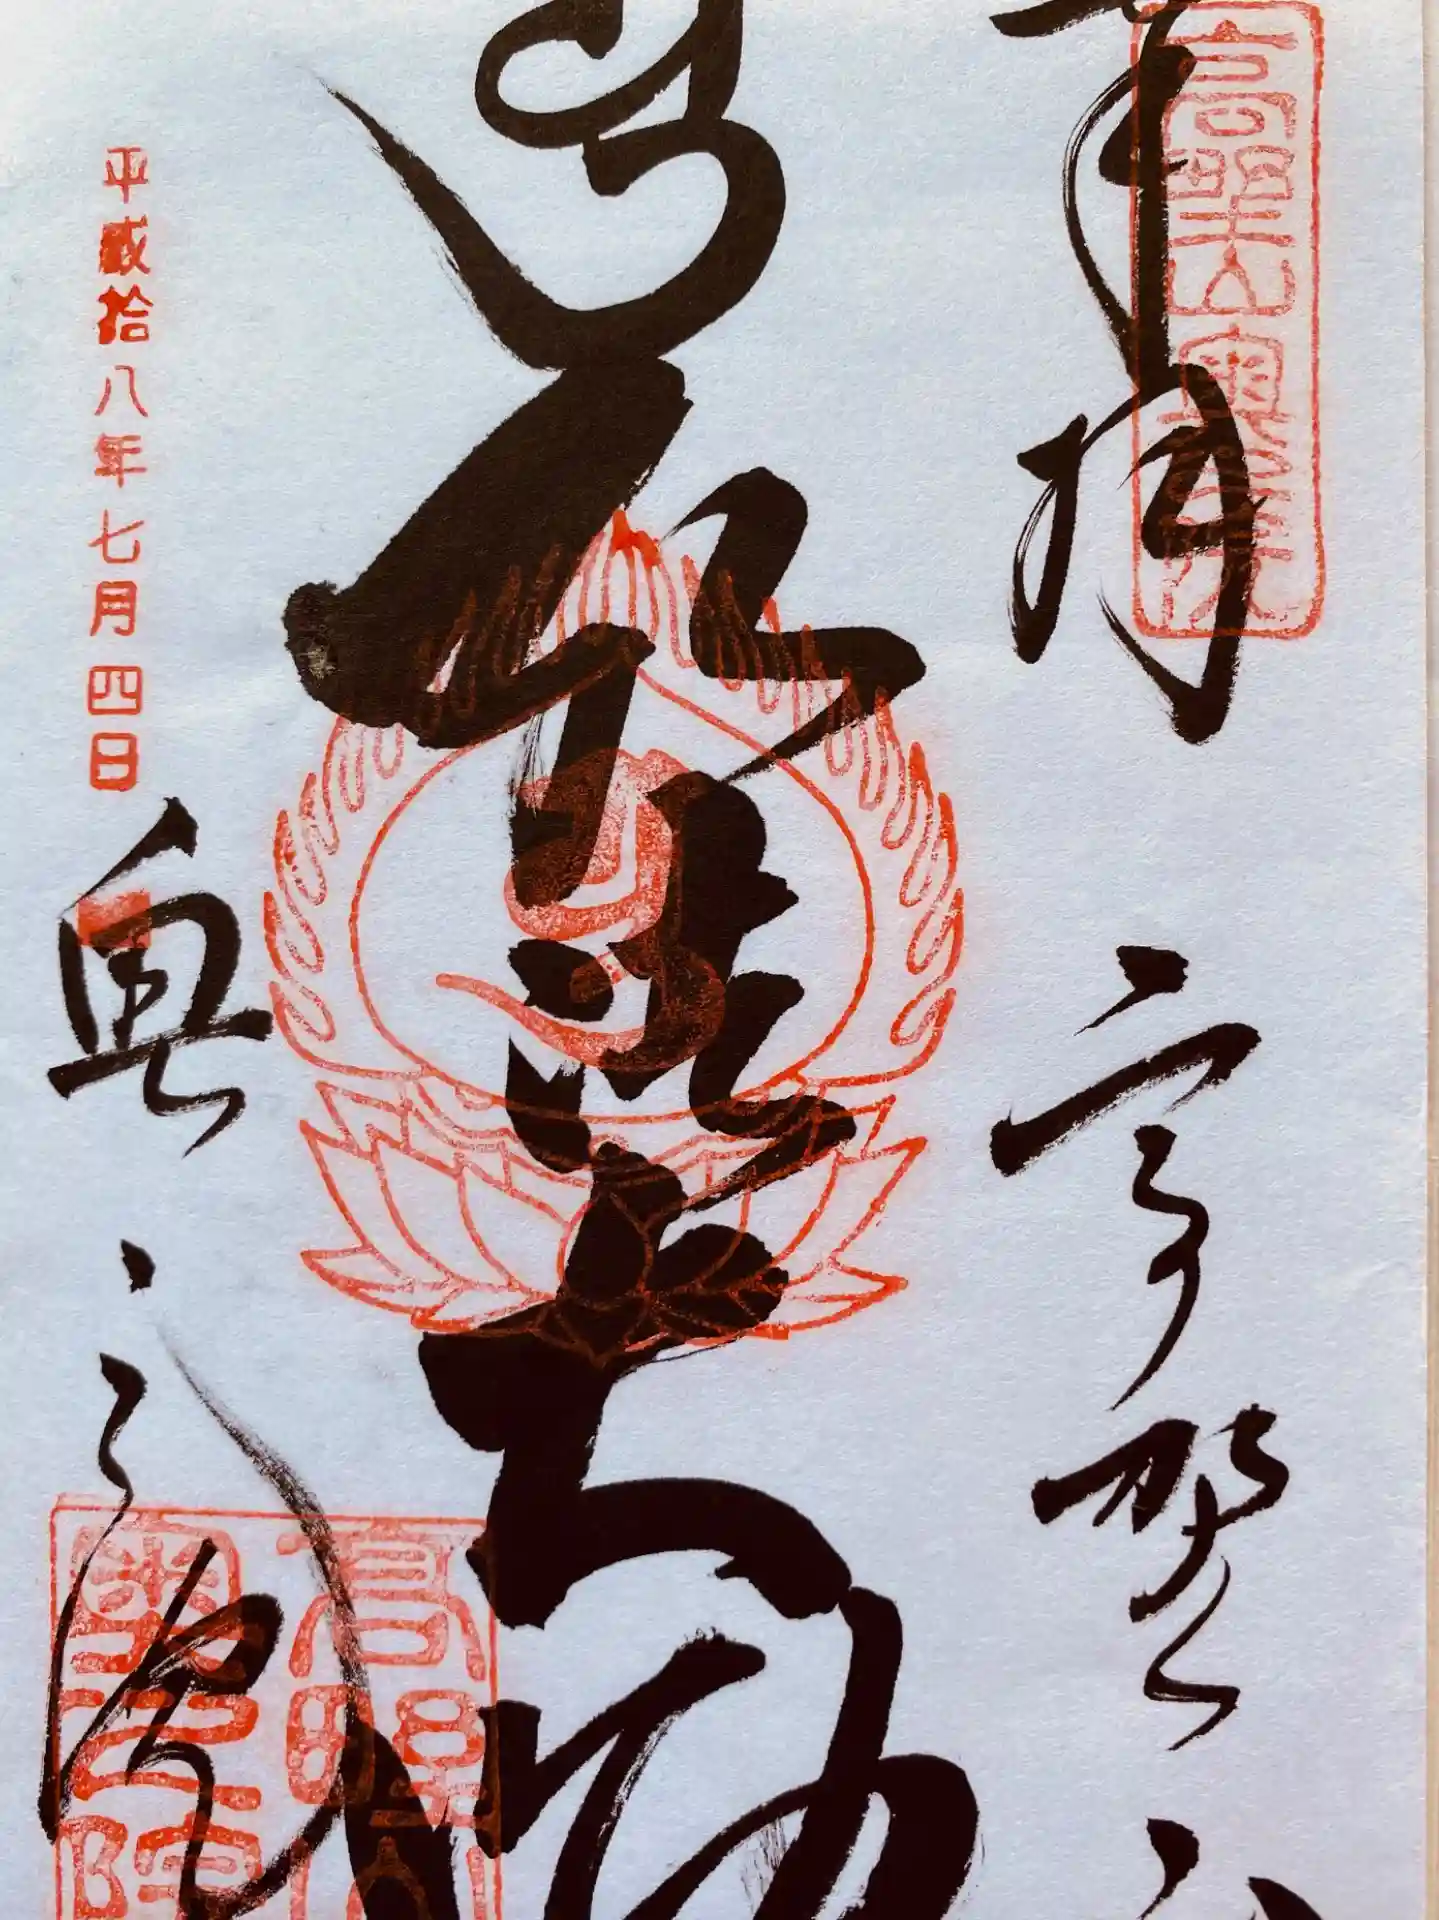 高野山奥之院
奉拝 高野山
弘法大師
平成拾八年七月四日
奥之院
高野山
奥之院